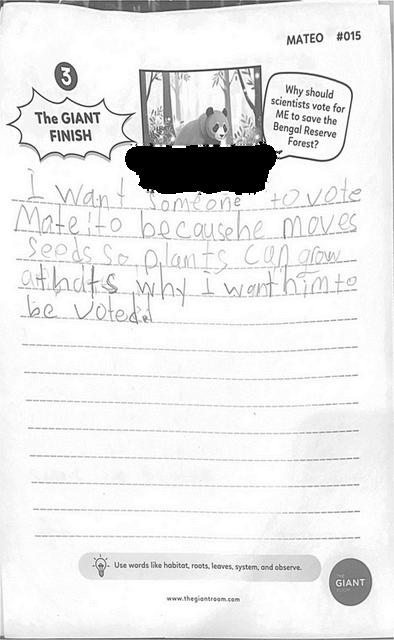 MATEO #015
3
The GIANT
FINISH
Why should
scientists vote for
ME to save the
Bengal Reserve
Forest?
I want someone to vote
Mateito because he moves
seeds so plants can grow
athats why I want him to
be voted.
Use words like habitat, roots, leaves, system, and observe.
THE
GIANT
ROOM
www.thegiantroom.com